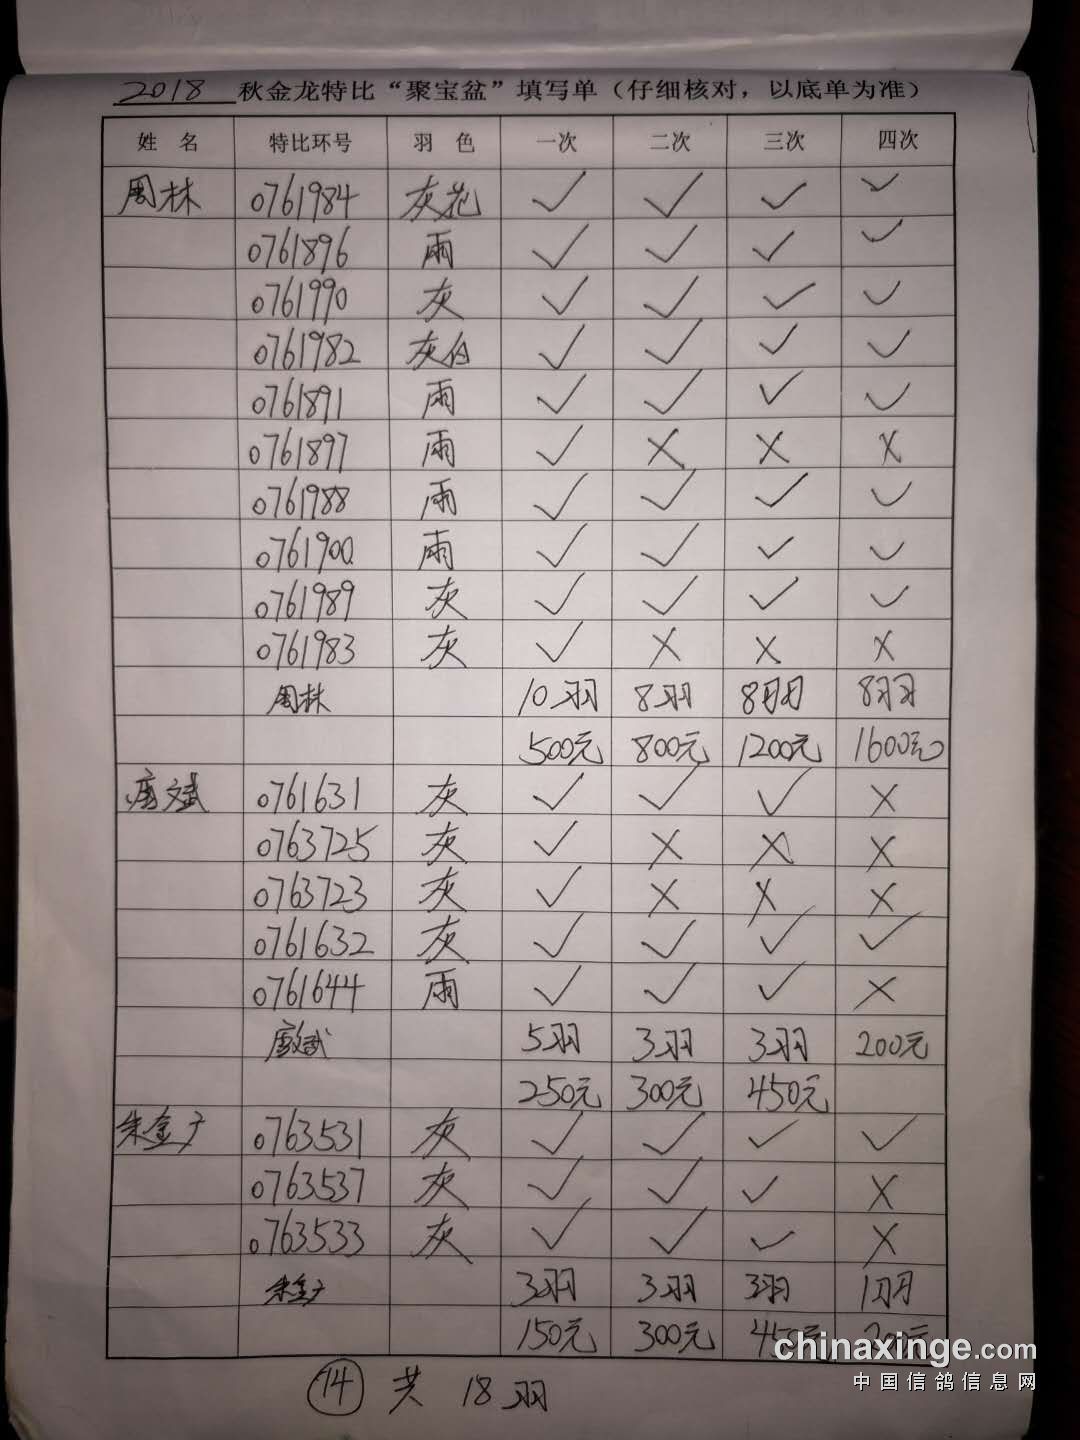 2018 秋金龙特比“聚宝盆”填写单（仔细核对，以底单为准）
姓 名 特比环号 羽 色 一次 二次 三次 四次
周林 0761984 灰花 ✓ ✓ ✓ ✓
0761896 雨 ✓ ✓ ✓ ✓
0761990 灰 ✓ ✓ ✓ ✓
0761982 灰白 ✓ ✓ ✓ ✓
0761891 雨 ✓ ✓ ✓ ✓
0761897 雨 ✓ × × ×
0761988 雨 ✓ ✓ ✓ ✓
0761900 雨 ✓ ✓ ✓ ✓
0761989 灰 ✓ ✓ ✓ ✓
0761983 灰 ✓ × × ×
周林 10羽 8羽 8羽 8羽
500元 800元 1200元 1600元
唐文斌 0761631 灰 ✓ ✓ ✓ ×
0763725 灰 ✓ × × ×
0763723 灰 ✓ × × ×
0761632 灰 ✓ ✓ ✓ ✓
0761644 雨 ✓ ✓ ✓ ×
唐文斌 5羽 3羽 3羽 200元
250元 300元 450元
朱金 0763531 灰 ✓ ✓ ✓ ✓
0763537 灰 ✓ ✓ ✓ ×
0763533 灰 ✓ ✓ ✓ ×
朱金 3羽 3羽 3羽 1羽
150元 300元 450元 200元
14 共 18羽
chinaxinge.com
中国信鸽信息网